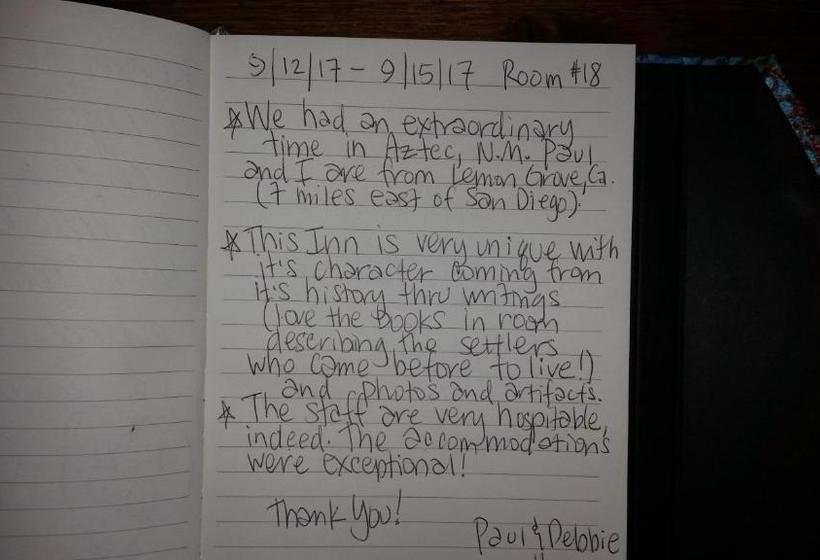 9/12/17 - 9/15/17 Room #18
☆ We had an extraordinary
time in Aztec, N.M. Paul
and I are from Lemon Grove, Ca.
(7 miles east of San Diego).
☆ This Inn is very unique with
it's character coming from
it's history thru writings
(love the books in room
describing the settlers
who came before to live!)
and photos and artifacts.
☆ The staff are very hospitable,
indeed. The accommodations
were exceptional!
Thank You!
Paul & Debbie